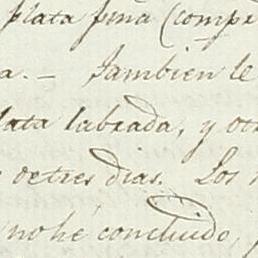 plata fina (compr
a. - Tambien le
lata labrada, y otr
de tres dias. Los
no hé concluido,